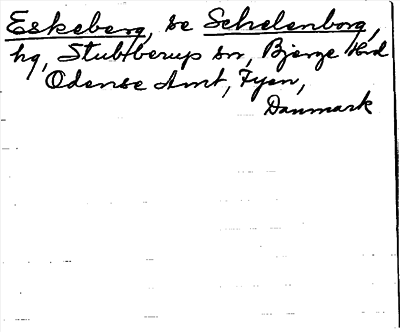 Eskeberg, se Schelenborg,
hg, Stubberup sn, Bjerge Hrd
Odense Amt, Fyen,
Danmark